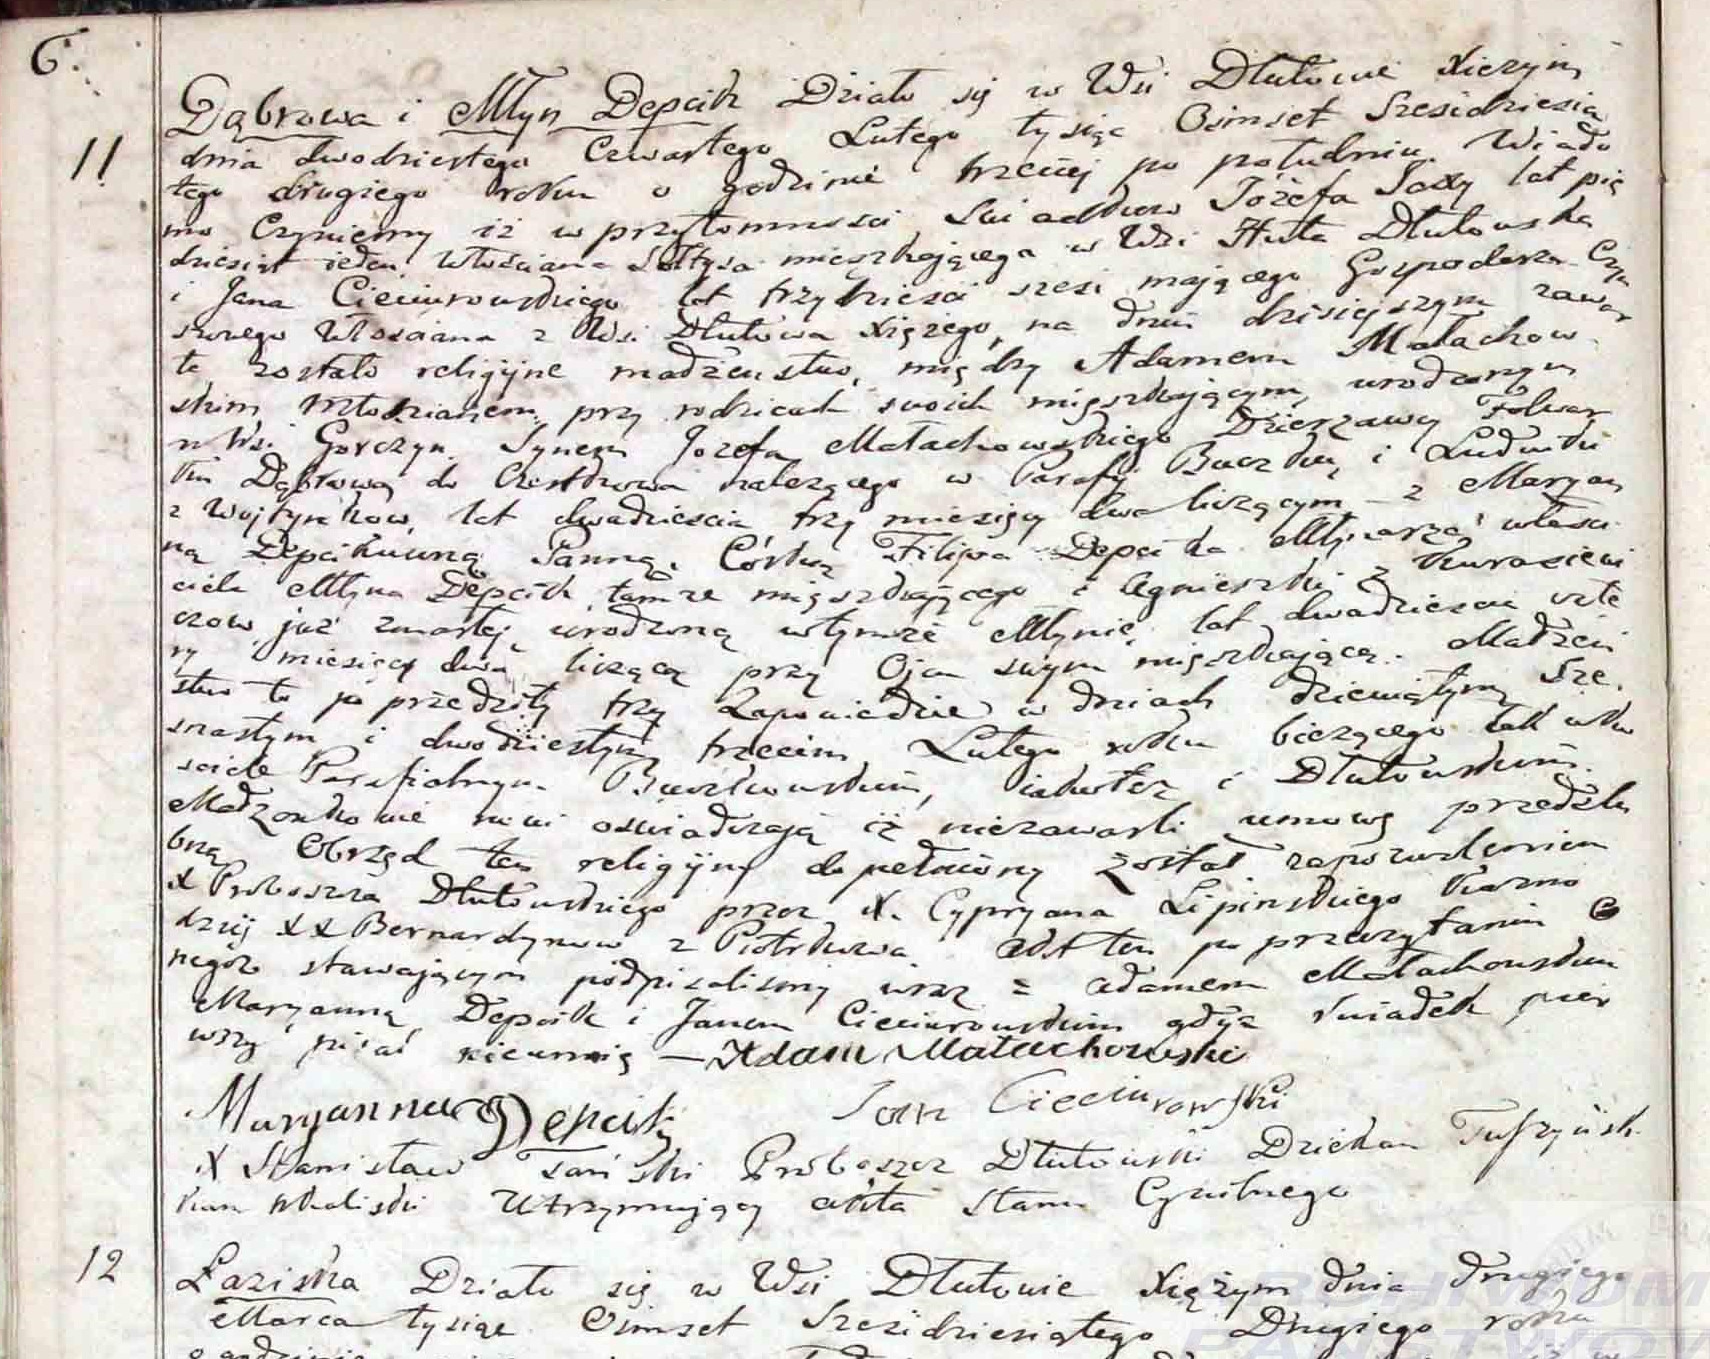 6.
11
Dąbrowa i Młyn Depcik Działo się w Wsi Dłutowie Xiezym
dnia dwodziestego Czwartego Lutego tysiąc Osimset Szesidziesią
tego drugiego roku o godzinie trzeciej po południu. Wiado
mo Czyniemy iż w przytomnosci Swiadkow Józefa Saxy lat pię
dziesiąt ieden. Włościana Sołtysa mieszkającega w Wsi Huta Dłutowska
i Jana Cieciurowskiego lat trzydziesci szesi mającego Gospodarza Czyn
szowego Włosciana z Wsi Dłutowa Xiężego, na dniu dzisiejszym zawar
te zostało religijne madżeństwo, między Adamem Małachow
skim Młodzianem, przy rodzicach swoich mięszkającym, urodzonym
w Wsi Gorczyn. Synem Jozefa Małachowskiego Dzierzawcy Folwar
ku Dąbrowa do Chestkowa nalezącego w Parafij Buczku, i Ludwiki
z Wojtynikow, lat dwadziescia trzy miesięcy dwa liczącym – z Maryan
ną Depcikówną Panną, Córką Filipa Depcika Młynarza własci
ciela Młyna Depcik tamze mięszkającego i Agnieszki z Kurasiewi
czow już zmarłej, urodzoną wtymze Młynie, lat dwadziescia czte
ry miesięcy dwa liczącą przy Ojcu swym mięszkającą. Madżeń
stwo to poprzedziły trzy Zapowiedzie w dniach dziewiątym, Sze
snastym i dwodziestym trzecim Lutego roku biezącego tak wko
sciele Parafialnym Buczkowskim, iakotez i Dłutowskim.
Madżonkowie nowi oswiadczają iż niezawarli umowy przedslu
bną Obrzęd ten religijny dopełniony został zapozwoleniem
X Proboszcza Dłutowskiego przez X. Cypryana Lipinskiego Kazno
dzieję XX Bernardynow z Piotrkowa. Akt ten po przeczytaniu Go
negóż stawającym podpisalismy wraz z Adamem Małachowskim
Maryanną Depcik i Janem Cieciurowskim gdyż świadek pier
wszy pisać nieumie — Adam Małachowski
Maryanna Depcik Jan Cieciurowski
X Stanisław Tański Proboszcz Dłutowski Dziekan Tuszyńsk.
Kan Kaliski Utrzymujący akta Stanu Cywilnego
12
Łaziska Działo się w Wsi Dłutowie Xiężym dnia drugiego
Marca tysiąc Osimset Szesidziesiątego Drugiego roku